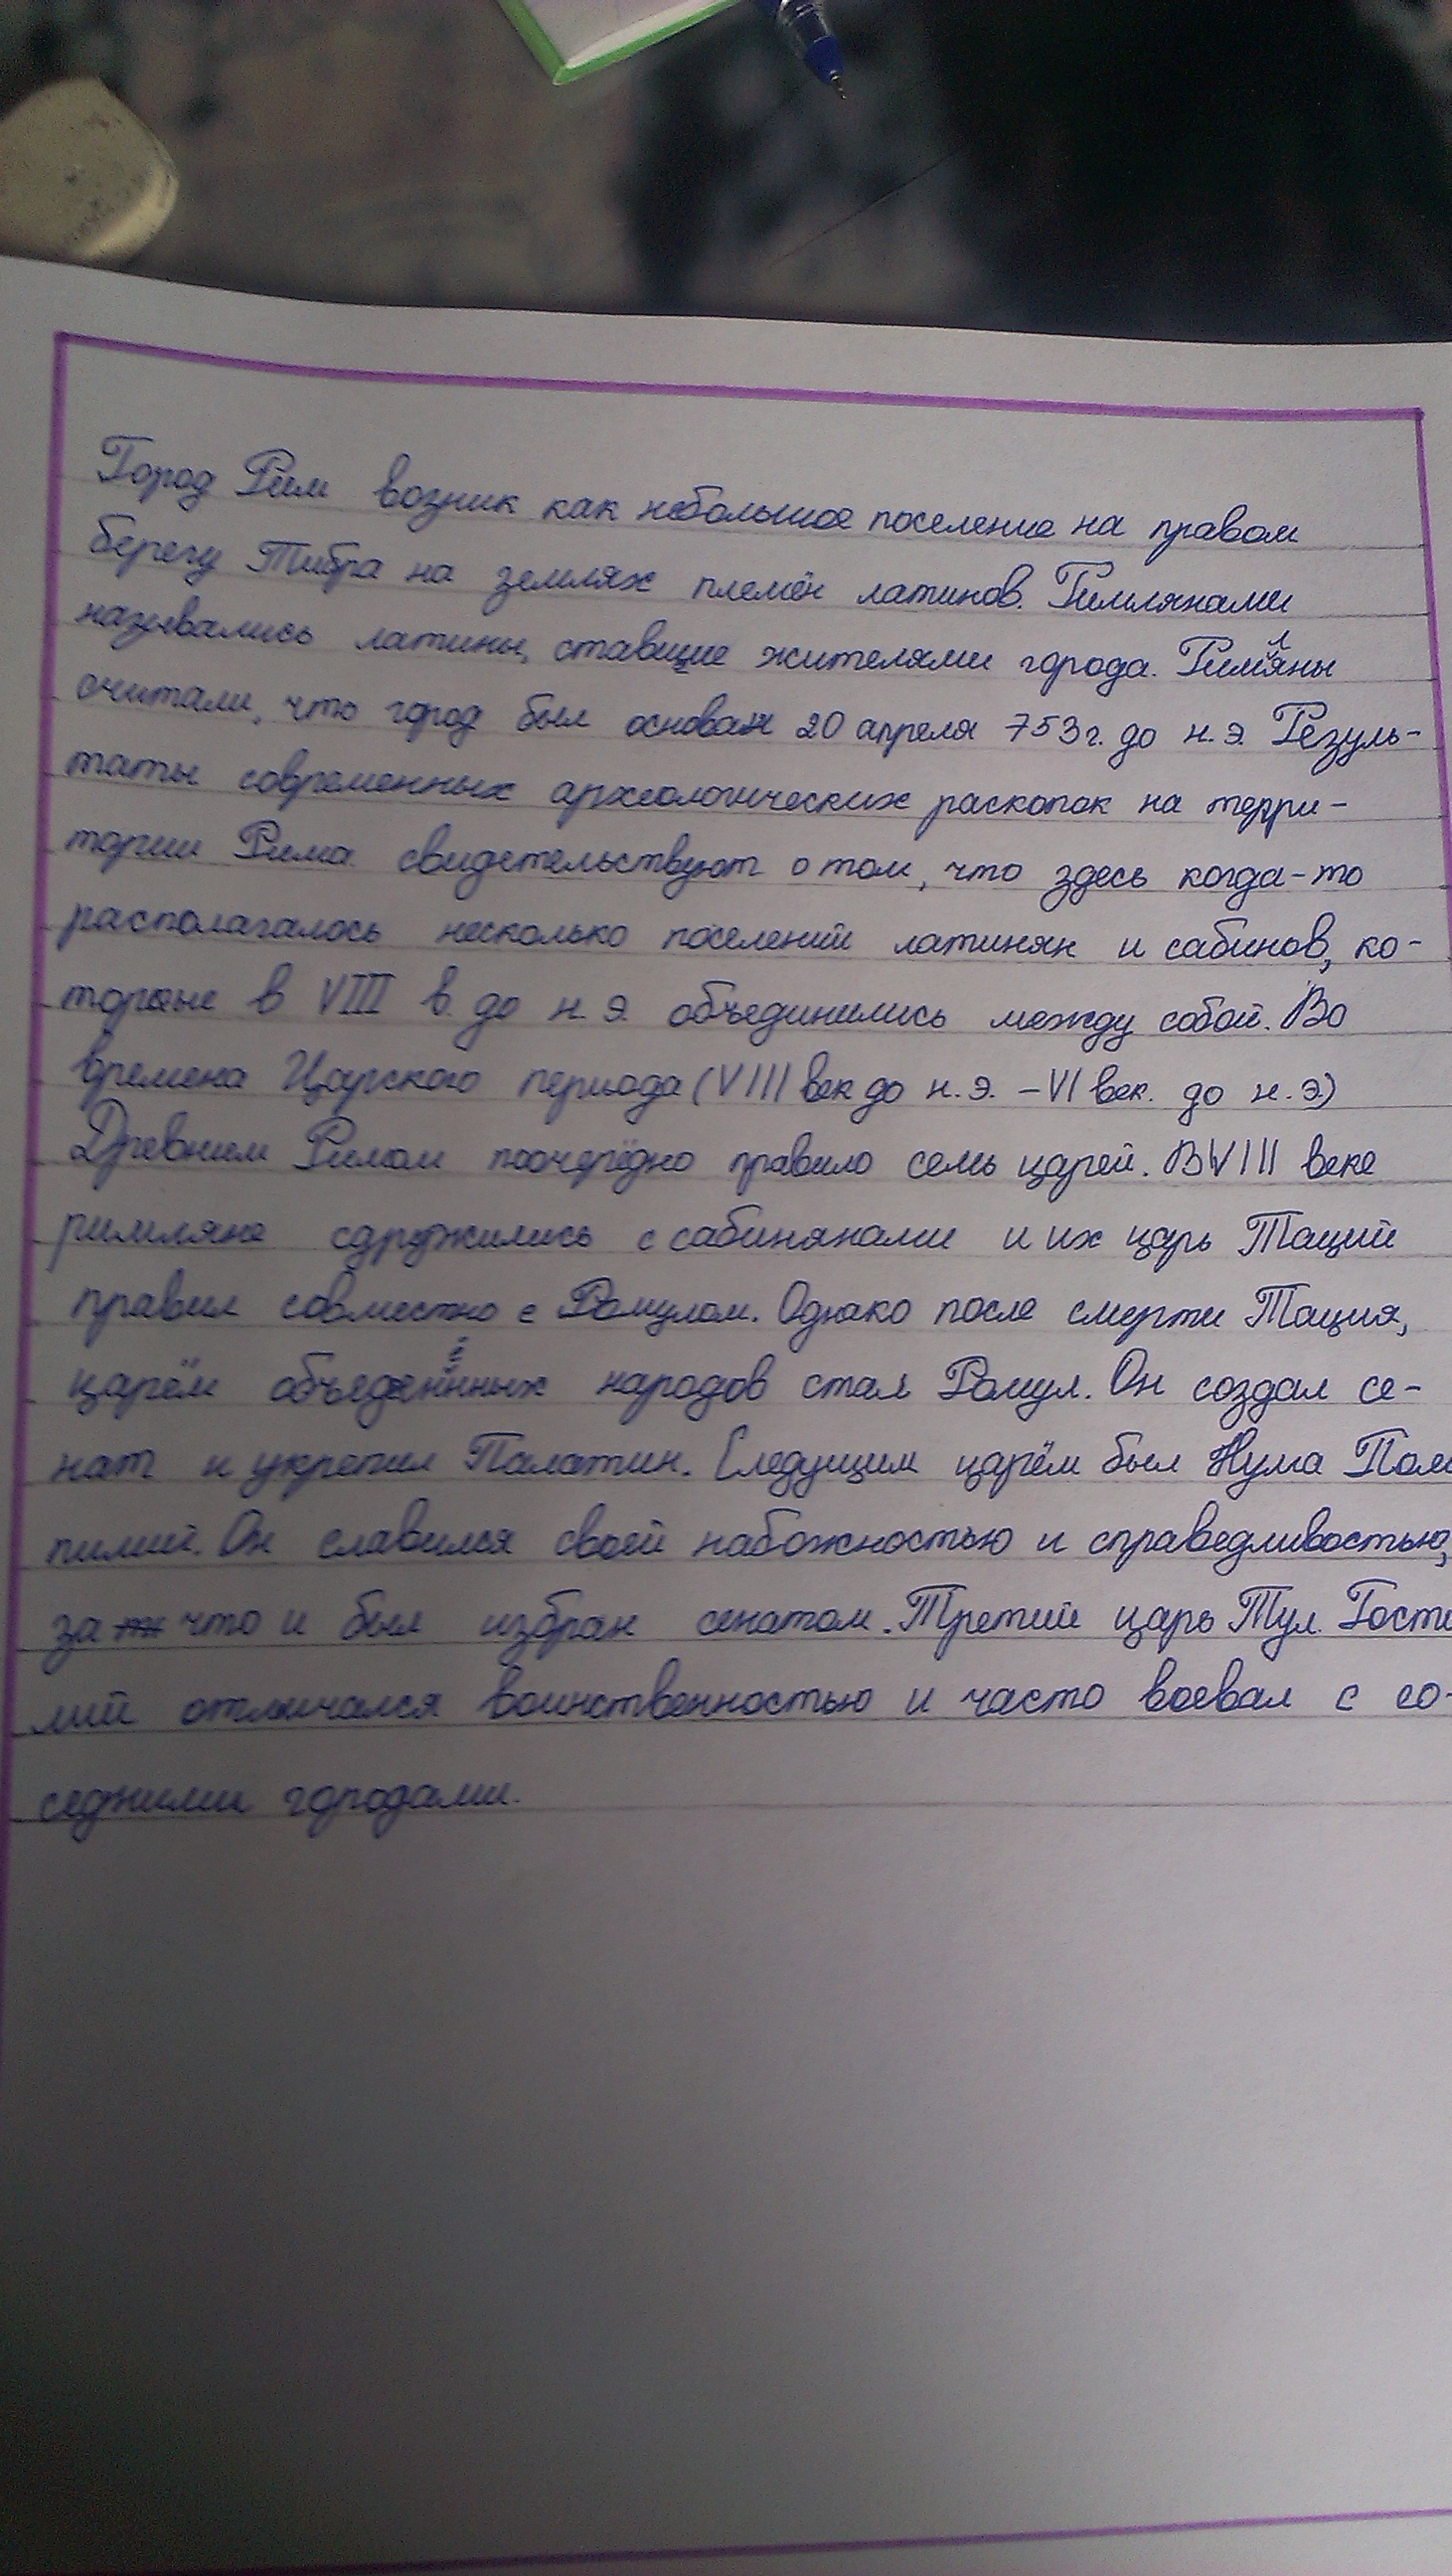 Город Рим возник как небольшое поселение на правом
берегу Тибра на землях племён латинов. Римлянами
назывались латины, ставшие жителями города. Римляны
считали, что город был основан 20 апреля 753г. до н.э. Резуль-
таты современных археологических раскопок на терри-
тории Рима свидетельствуют о том, что здесь когда-то
располагалось несколько поселений латинян и сабинов, ко-
торые в VIII в. до н.э. объединились между собой. Во
времена Царского периода (VIII век до н.э. – VI век. до н.э.)
Древним Римом поочерёдно правило семь царей. В VIII веке
римляне сдружились с сабинянами и их царь Таций
правил совместно с Ромулом. Однако после смерти Тация,
царём объединённых народов стал Ромул. Он создал се-
нат и укрепил Палатин. Следущим царём был Нума Пом
пилий. Он славился своей набожностью и справедливостью,
за что и был избран сенатом. Третий царь Тул Гости
лий отличался воинственностью и часто воевал с со-
седними городами.